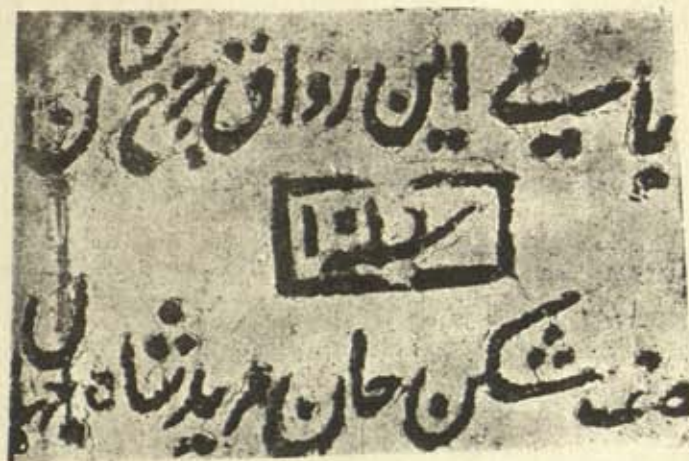 بانی این رواق چرخ نشان
سنه
صف شکن خان مرید شاه جهان